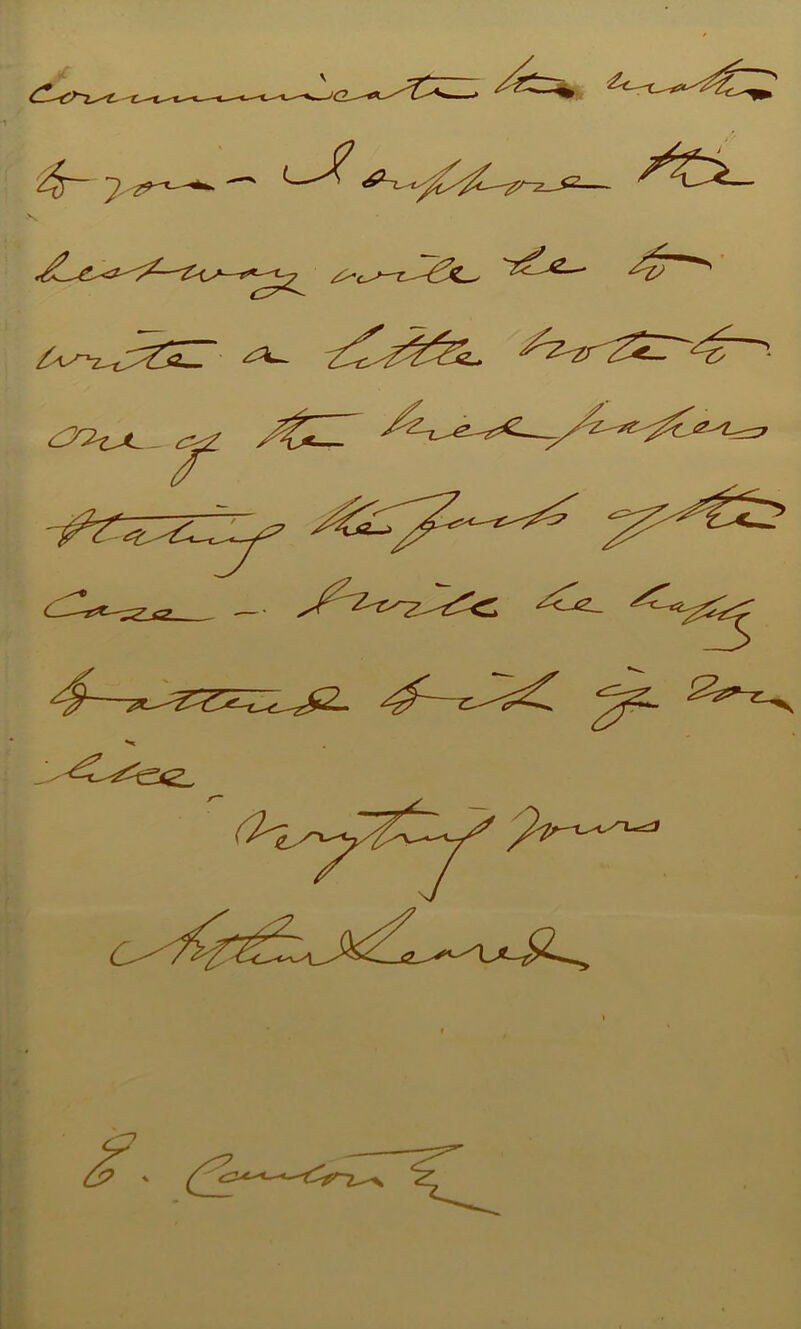 communicate the matter
to you — I suppose the
best way would be to
write a little note to
one of the newspapers
stating the facts of the
case — I write be happy
to attend to it if you
like.
Very truly yours
E.